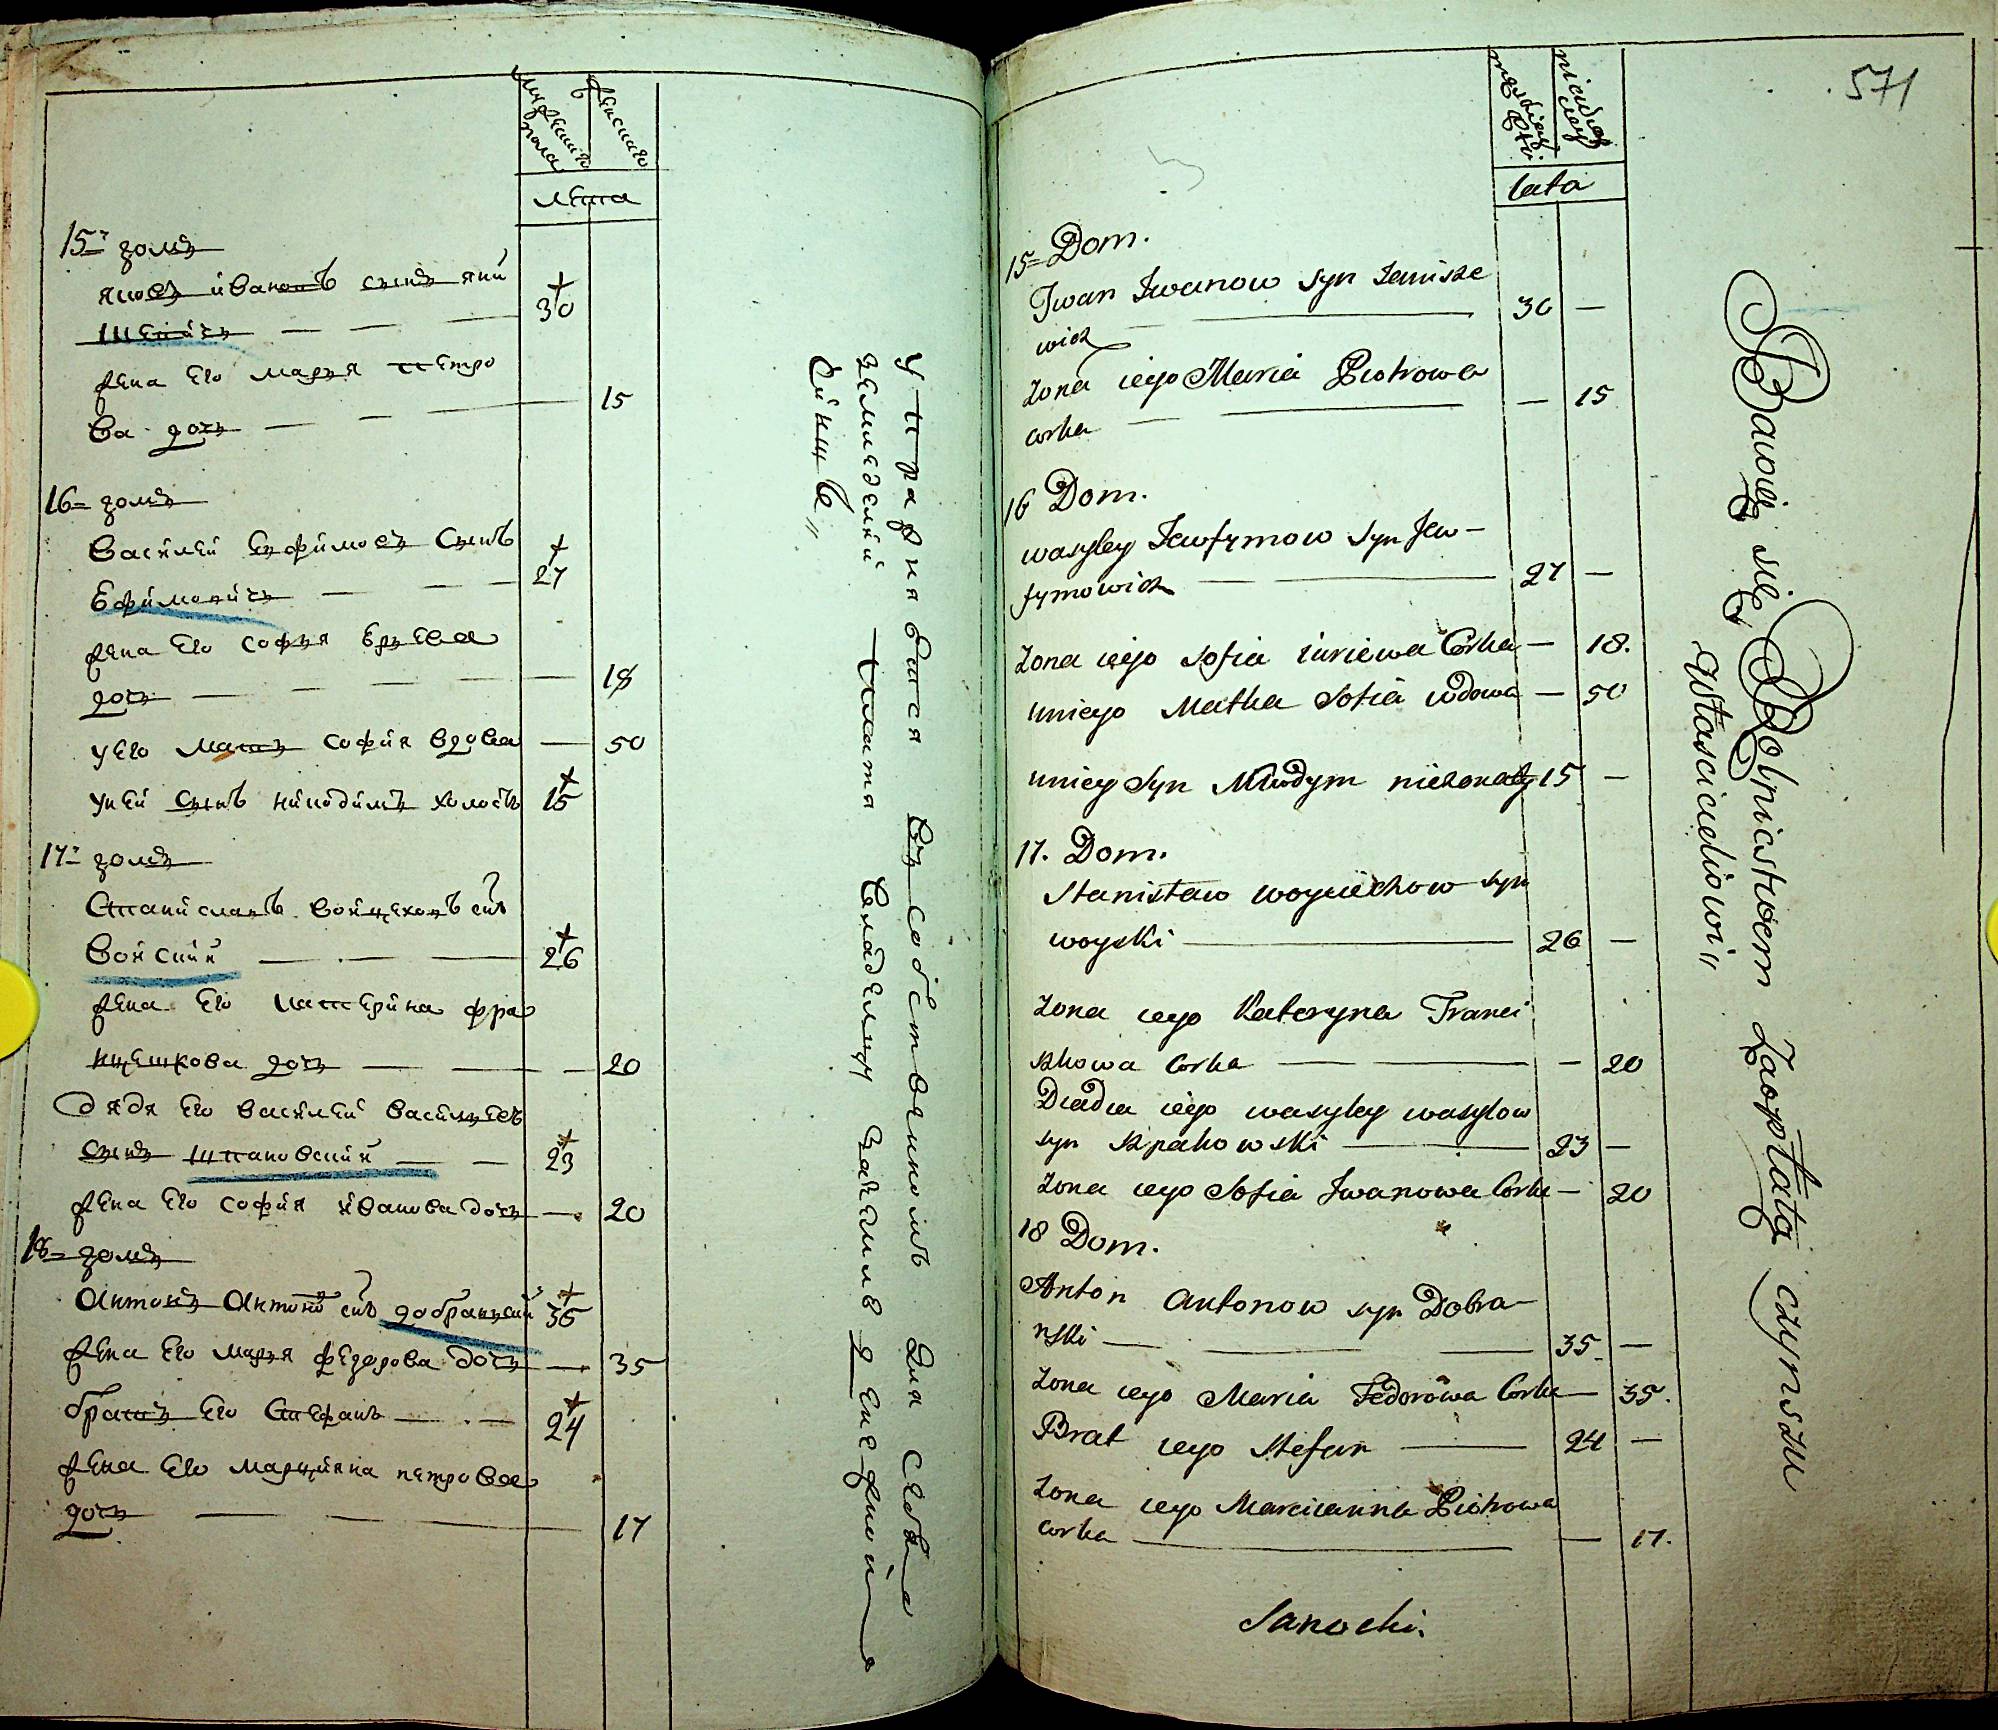 мужескаго пола
женскаго
лѣта
15 домъ
30
жена его марія петро
ва дочь
15
16 домъ
василей ефимовъ сынъ
ефимовичъ
27
жена его софія
дочь
18
у его мать софія вдова
50
у ней сынъ никодимъ холостъ
15
17 домъ
станиславъ войцеховъ снъ
войскій
26
жена его катерина фра
нцешкова дочь
20
дядя его василей васильевъ
сынъ шпаковскій
23
жена его софія иванова дочь
20
18 домъ
антонъ антоновъ снъ добранскій
35
жена его марія федорова дочь
35
братъ его стефанъ
24
жена его марціяна петрова
дочь
17
упражняются въ собственномъ для себя
земледелии платя владелцу заземлю денежной
чиншъ
571
męzkiey płci
niewieściey
lata
15 Dom.
Iwan Iwanow syn Janisze
wicz
30 —
żona iego Maria Piotrowa
corka
— 15
16 Dom.
wasyley Jewfymow syn Jew-
fymowicz
27 —
żona iego Sofia iuriewa Corka — 18.
uniego Matka Sofia wdowa — 50
uniey Syn nieżonaty 15 —
17. Dom.
Stanisław woyciechow syn
woyski
26 —
żona iego Kateryna Franci
szkowa Corka — 20
Diadia iego wasyley wasylow
syn szpakowski 23 —
żona iego Sofia Iwanowa Corka — 20
18 Dom.
Anton Antonow syn Dobra-
nski 35 —
żona iego Maria Fedorowa Corka — 35.
Brat iego Stefan 24 —
żona iego Marcianna Piotrowa
corka — 17.
Sanocki.
Bawią się Rolnictwem Zaopłatą czynszu
Własicielowi"